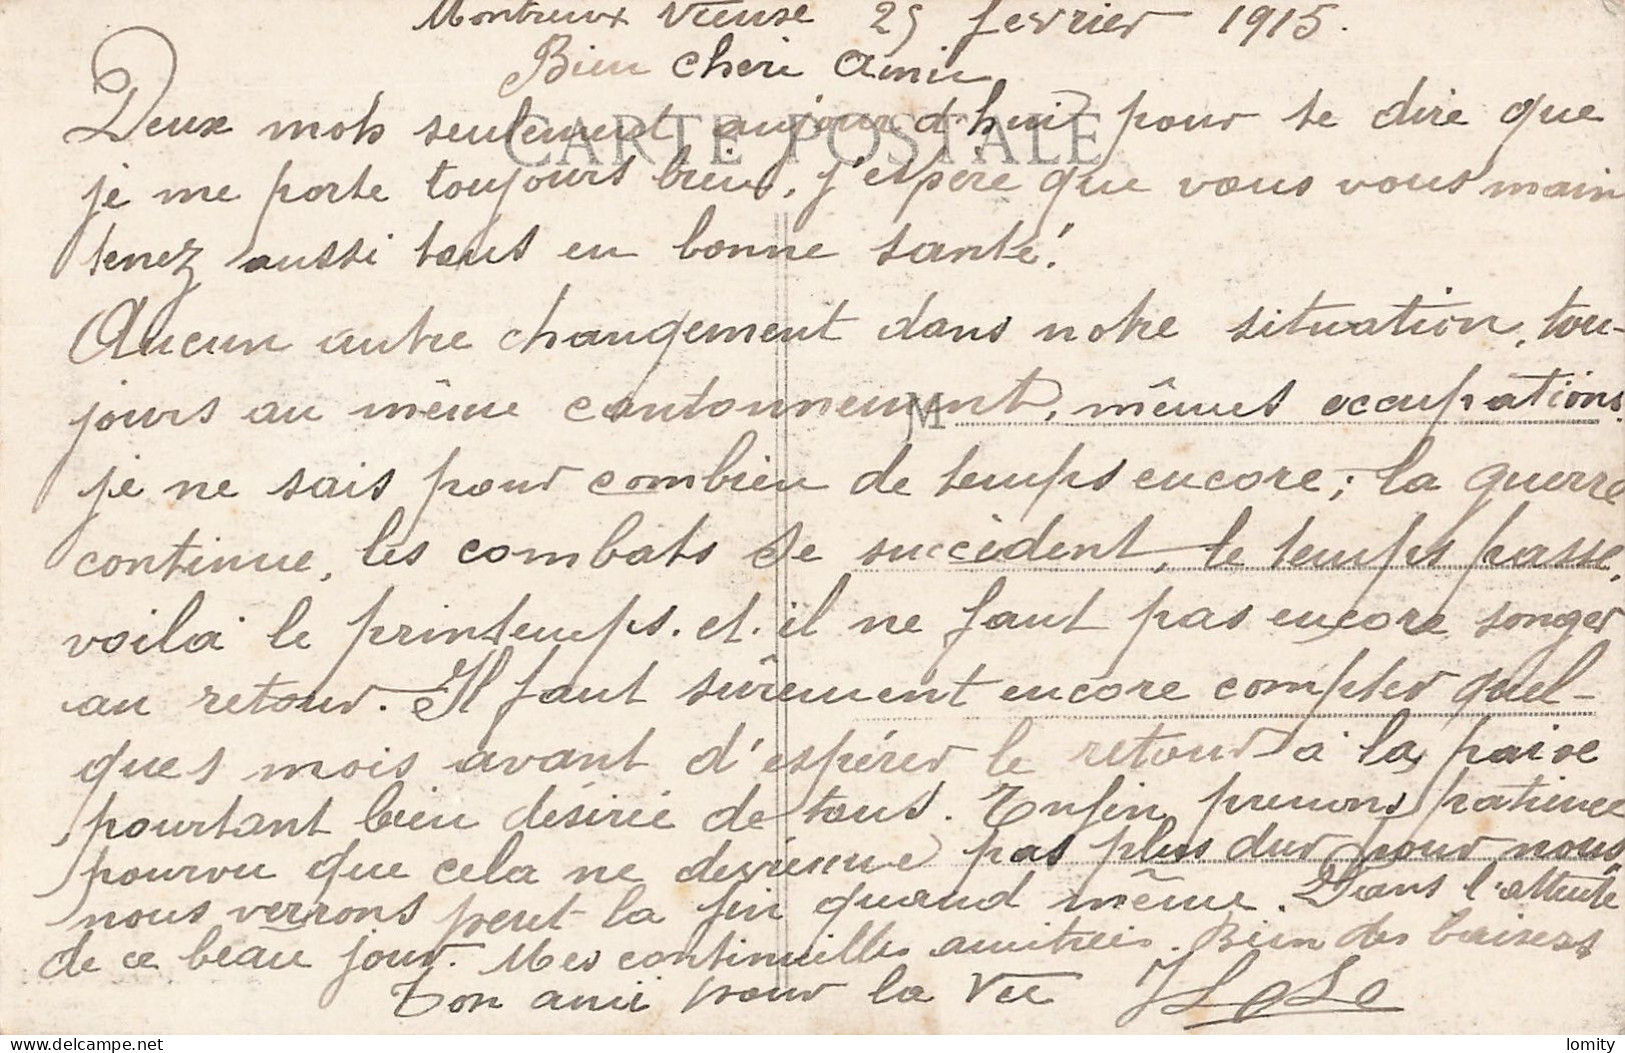 Montreux Vieuse 25 fevrier 1915.
Bien cheri Amie
CARTE POSTALE
Deux mots seulement aujourd'hui pour te dire que
je me porte toujours bien, j'espère que vous vous main
tenez aussi tous en bonne santé!
Aucun autre changement dans notre situation, tou-
jours au même cantonnement, mêmes occupations
M
je ne sais pour combien de temps encore; la guerre
continue, les combats se succèdent, le temps passe,
voilà le printemps. et. il ne faut pas encore songer
au retour. Il faut sûrement encore compter quel-
ques mois avant d'espérer le retour à la paix
pourtant bien désirée de tous. Enfin, prenons patience
pourvu que cela ne devienne pas plus dur pour nous
nous verrons peut-la fin quand même. Dans l'attente
de ce beau jour. Mes continuelles amitiés. Bien des baisers
Ton ami pour la Vie
lomity